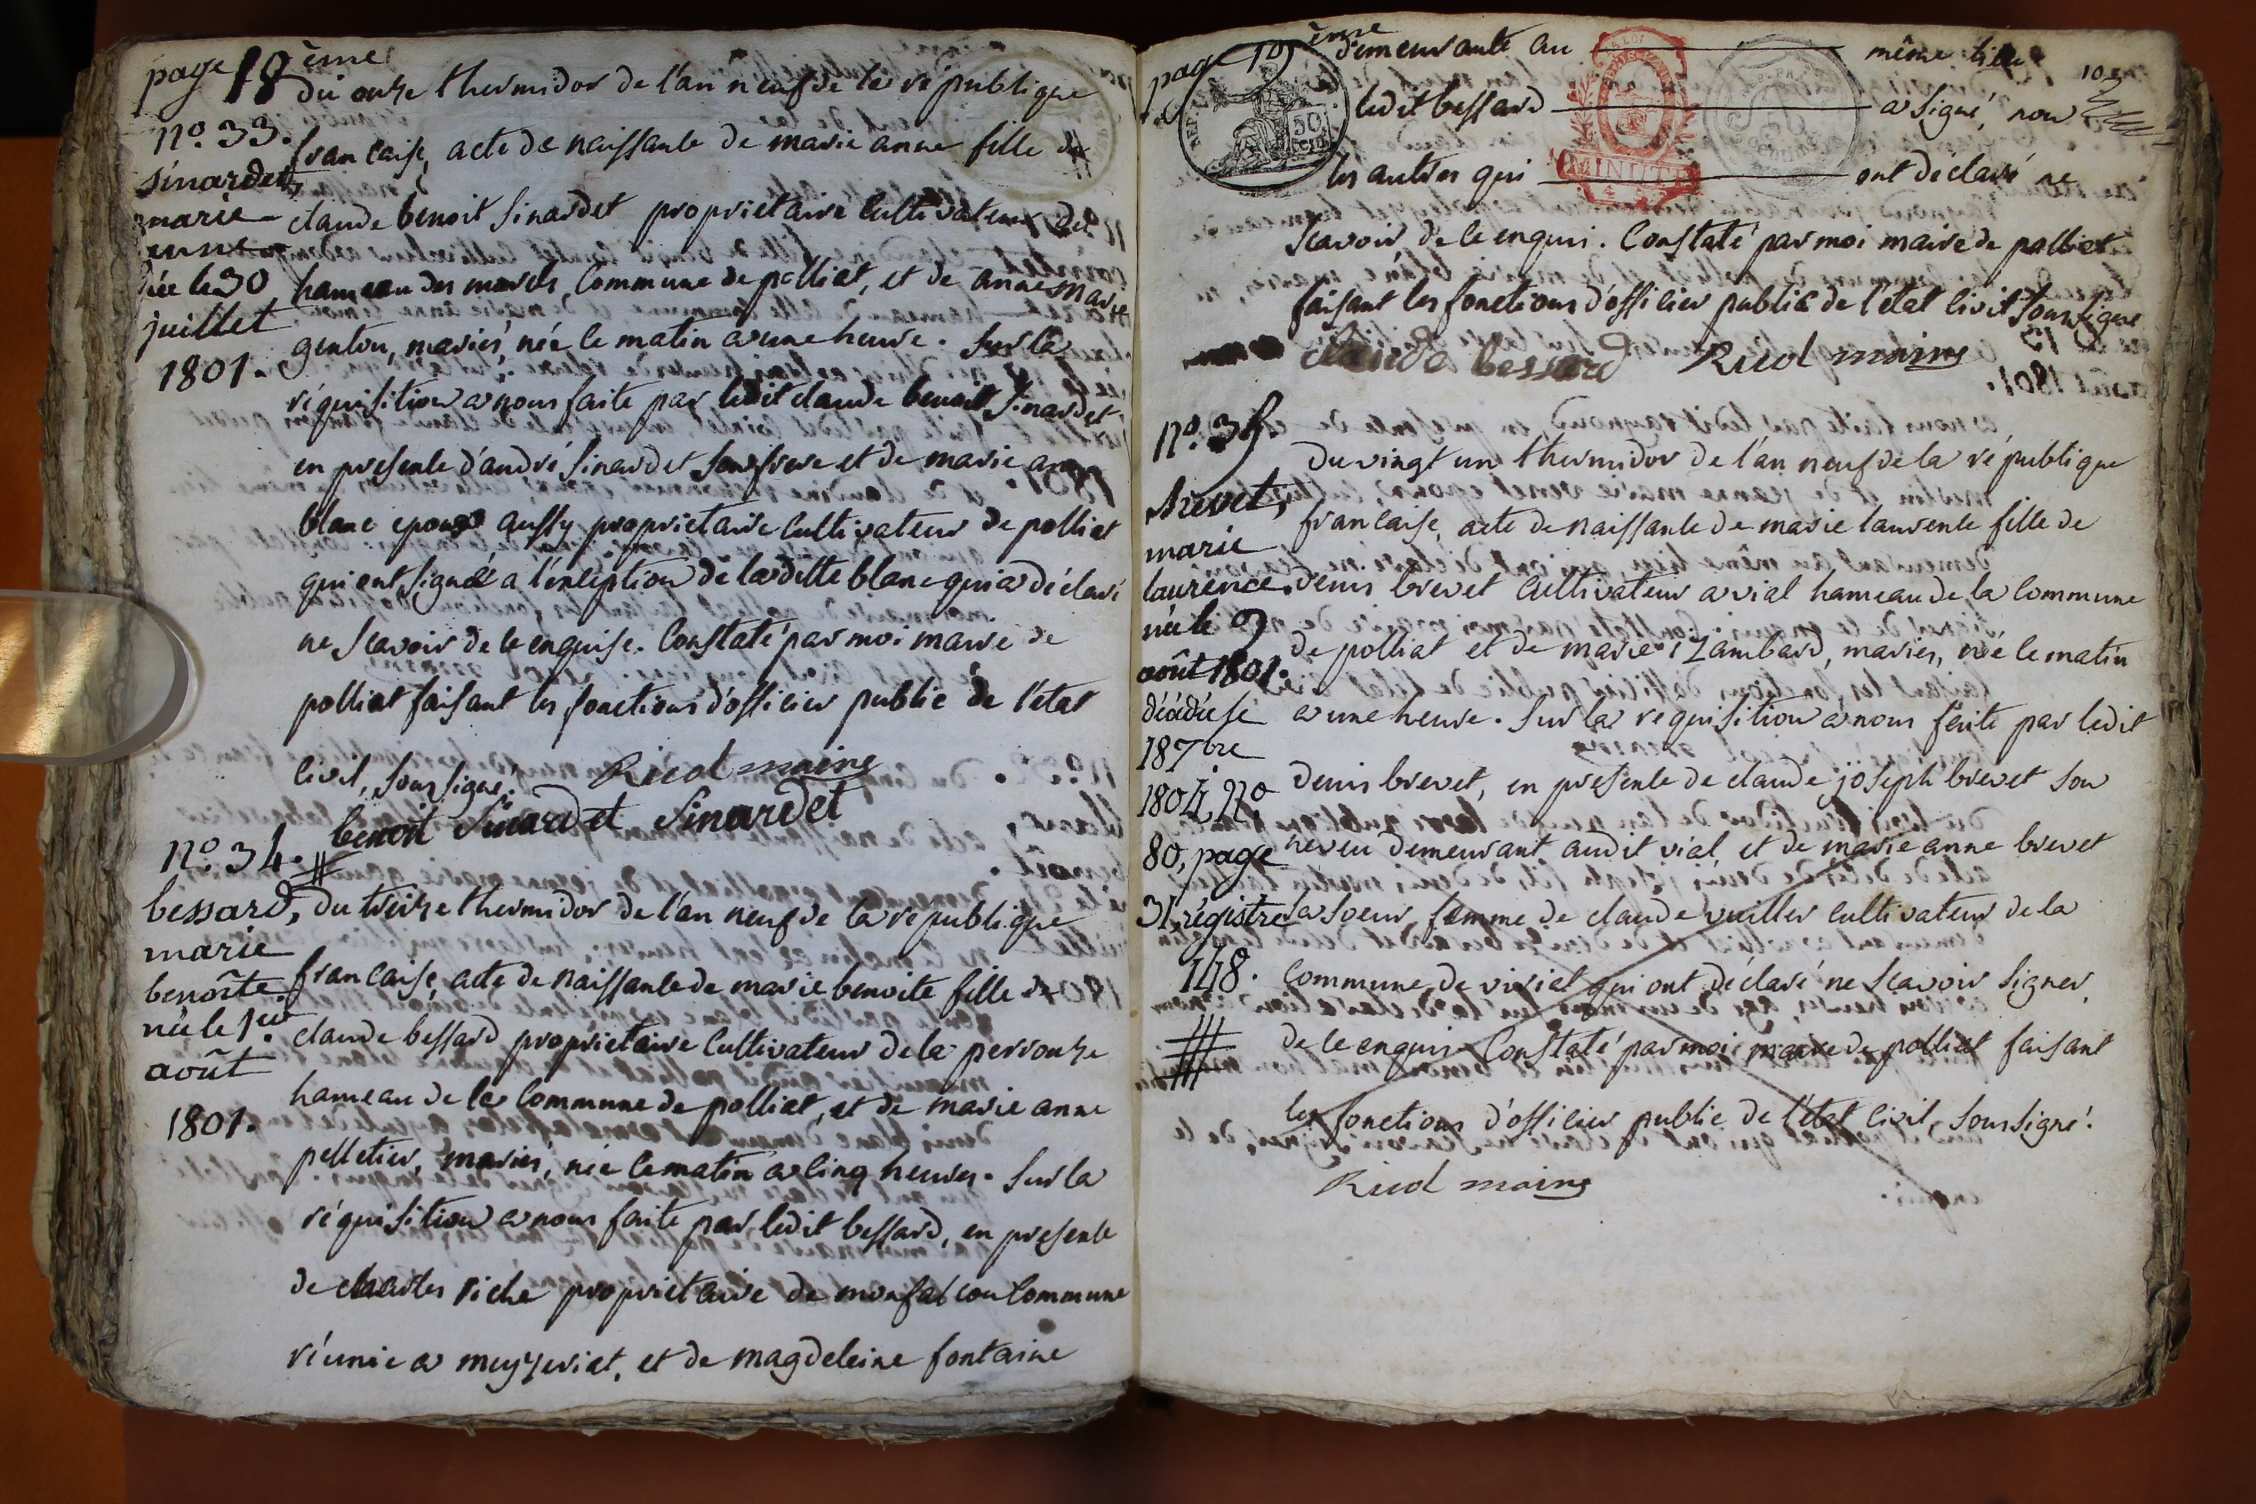 page 18ème
du onze thermidor de l'an neuf de la république
n.o 33. française, acte de naissance de marie anne fille de
sinardet,
marie claude benoit sinardet proprietaire cultivateur du
anne
née le 30 hameau des marets, commune de polliat, et de anne marie
juillet
1801. genton, mariés, née le matin a une heure. sur la
réquisition a nous faite par ledit claude benoit sinardet
en presence d'andré sinardet son frere et de marie anne
blanc epouse aussy proprietaire cultivateur de polliat
qui ont signé a l'exception de laditte blanc qui a déclaré
ne scavoir de ce enquise. Constaté par moi maire de
polliat faisant les fonctions d'officier public de l'état
civil, soussigné. Ricol maire
benoit Sinardet Sinardet
n.o 34.
bessard, du treize thermidor de l'an neuf de la république
marie
benoîte française, acte de naissance de marie benoite fille de
née le 1er. claude bessard proprietaire cultivateur de la perrouze
août
1801. hameau de la commune de polliat, et de marie anne
pelletier, mariés, née le matin a cinq heures. sur la
réquisition a nous faite par ledit bessard, en presence
de charles riche proprietaire de monfalcon commune
réunie a meyzeriat, et de magdeleine fontaine
page 19ème demeurante au même lieu
10
REP.
50 cent
MINUTE
ledit bessard a signé, non
les autres qui ont déclaré ne
scavoir de ce enquis. Constaté par moi maire de polliat
faisant les fonctions d'officier public de l'état civil soussigné
claude bessard Ricol maire
n.o 35
du vingt un thermidor de l'an neuf de la république
brevet, française, acte de naissance de marie laurence fille de
marie
laurence. denis brevet cultivateur a vial hameau de la commune
née le 9 de polliat et de marie Zambard, mariés, née le matin
août 1801.
décédée le a une heure. sur la requisition a nous faite par ledit
18 7bre
1804, n.o denis brevet, en presence de claude joseph brevet son
80, page neveu demeurant audit vial, et de marie anne brevet
31, régistre sa soeur, femme de claude vuiller cultivateur de la
148. commune de viriat qui ont déclaré ne scavoir signer
de ce enquis. Constaté par moi maire de polliat faisant
les fonctions d'officier public de l'état civil, soussigné.
Ricol maire